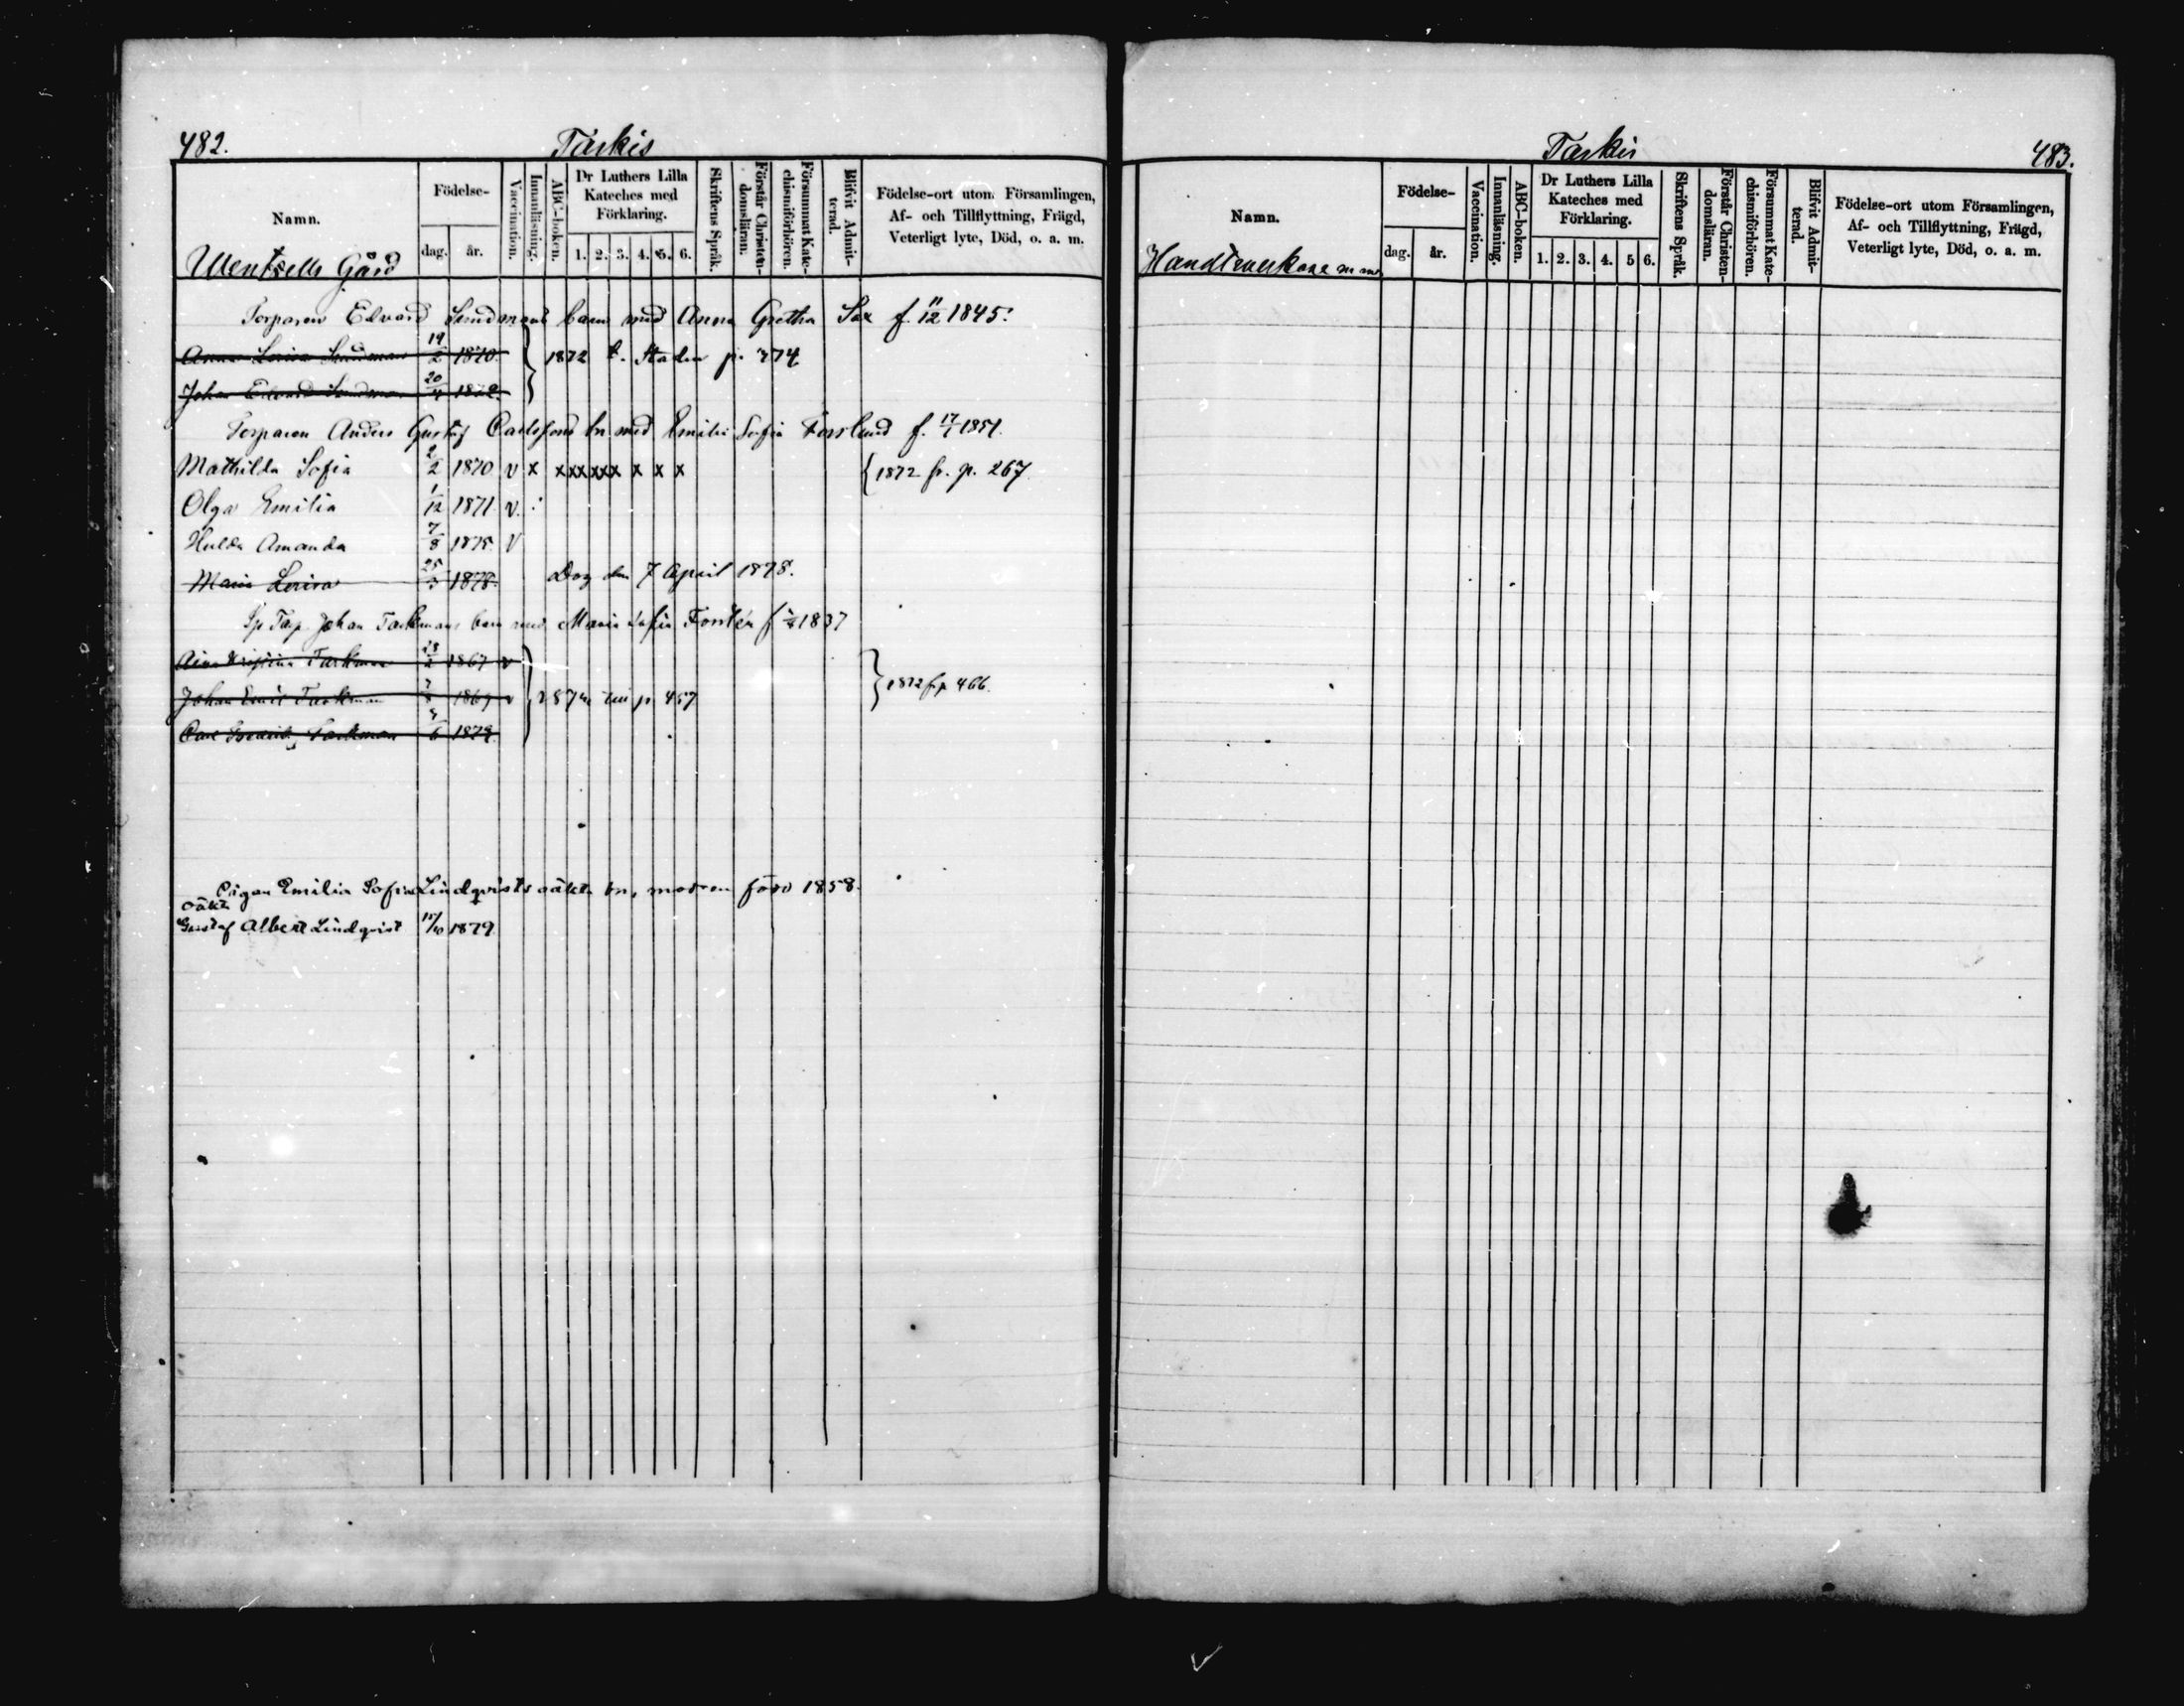 482. Tarkis
Namn.
Födelse-
dag.
år.
Vaccination.
Innanläsning.
ABC-boken.
Dr Luthers Lilla
Kateches med
Förklaring.
1. 2. 3. 4. 5. 6.
Skriftens Språk.
Förstår Christen-
domsläran.
Försummat Kate-
chismiförhören.
Blifvit Admit-
terad.
Födelse-ort utom Församlingen,
Af- och Tillflyttning, Frägd,
Veterligt lyte, Död, o. a. m.
Wentsells Gård
Torparen Edvard Sundmans barn med Anna Gretha Sax f. 11/12 1845.
Anna Lovisa Sundman 19/2 1870 } 1872 t. Staden p. 774
Johan Edvard Sundman 20/4 1872
Torparen Anders Gustaf Carlssons bn med Emilia Sofia Forslund f. 17/1 1851.
Mathilda Sofia 2/2 1870 v x x x x x x x x x x { 1872 fr. p. 267
Olga Emilia 1/12 1871 v. :
Hulda Amanda 7/8 1875 V
Maria Lovisa 25/3 1878. Dog den 7 April 1878.
Johan Tarkmans barn med Maria Sofia 1837
Tarkman 1867 v
Johan Emil Tarkman 1869 v p 457 } 1872 fr p 466.
Carl Fredrik Tarkman
Pigan Emilia Sofia Lindqvists oäkta bn, modren född 1858.
oäkta
Gustaf Albert Lindqvist 15/10 1879
Tarkis 483.
Namn.
Födelse-
dag.
år.
Vaccination.
Innanläsning.
ABC-boken.
Dr Luthers Lilla
Kateches med
Förklaring.
1. 2. 3. 4. 5 6.
Skriftens Språk.
Förstår Christen-
domsläran.
Försummat Kate-
chismiförhören.
Blifvit Admit-
terad.
Födelse-ort utom Församlingen,
Af- och Tillflyttning, Frägd,
Veterligt lyte, Död, o. a. m.
Handtverkare m m